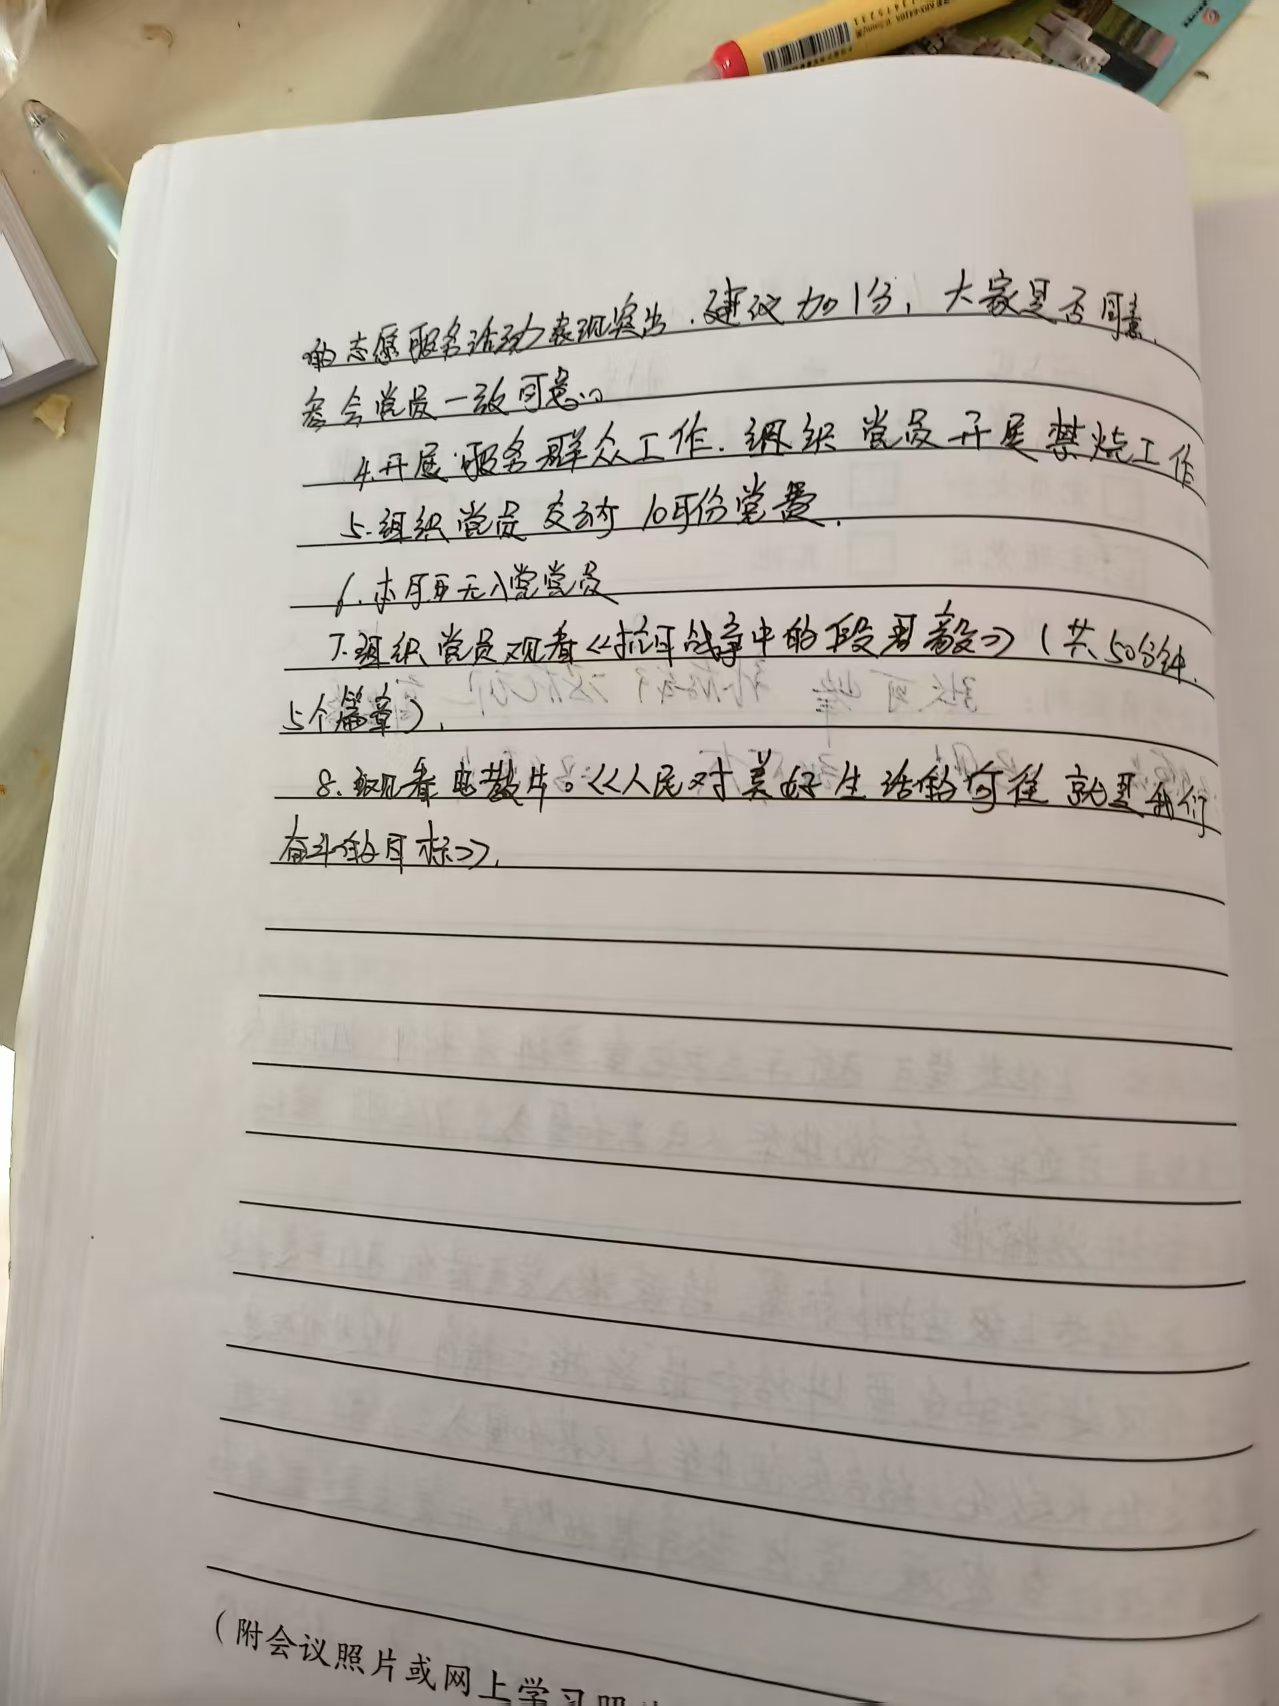 的志愿服务活动表现突出.建议加1分,大家是否同意.
参会党员一致同意。
4.开展服务群众工作.组织党员开展禁烧工作
5.组织党员交纳10月份党费.
6.本月无入党党员
7.组织党员观看《抗日战争中的段君毅》(共50分钟.
5个篇章).
8.观看电教片。《人民对美好生活的向往就是我们
奋斗的目标》.
(附会议照片或网上学习照